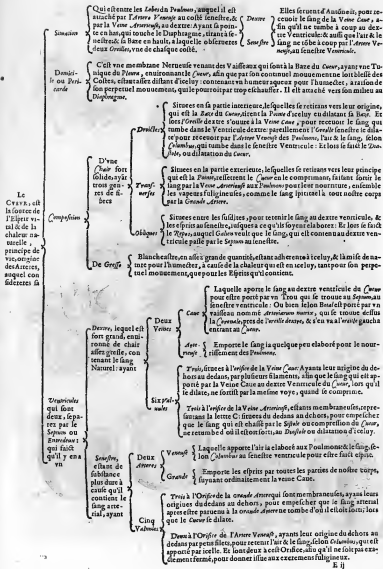 Qui est entre les Lobes du Poulmon, auquel il est
attaché par l'Artere Veneuse au costé senestre & par
la Veine Arterieuse, au dextre Ayant sa pointe
en has, qui touche le Diaphragme, tirant à senestre:
& sa Baze en hault, à laquelle obserueres
deux Oreilles, vne de chaque costé.
Situation
Dextre
Senestre
Elles seruent d'Antisone, pour retenir
le sang de la Veine Caue à
fin qu'il ne tumbe à coup au dextre
Ventricule: & aussi que l'air & le
sang ne tōbe à coup par l'Artere Veneuse,
au senestre Ventricule.
Domicile
ou Pericarde
C'est vne membrane Nerueuse venant des Vaisseaux qui sont à la Baze du Cueur, ayant vne Tunique
du Pleura, enuironnant le Cueur, afin que par son continuel mouuement ne soit blessé des
Costes, estant assez distant d'iceluy: contenant vn humeur aqueux pour l'humecter, à raison de
son perpetuel mouuement, qui le pourroit par trop eschauffer. Il est attaché vers son milieu au
Diaphragme.
Le
CVEVR, est
la source de
l'Esprit vital
& de la
chaleur naturelle
,
principe de
vie, origine
des Arteres,
auquel con
sideres sa
Composition
D'vne
Chair fort
solide, ayāt
trois genres
de fibres
Droictes
Situees en sa partie interieure, lesquelles se retirans vers leur origine,
qui est la Baze du Cueur, tirent la Pointe d'iceluy en dilatant sa Baze. Et
lors l'Oreille dextre s'ouure à la Veine Caue, pour receuoir le sang qui
tumbe dans le Ventricule dextre: pareillement l'Oreille senestre se dilate
pour receuoir par l'Artere Veneuse des Poulmons, l'air & le sang, selon
Columbus, qui tumbe dans le senestre Ventricule: Et lors se faict le Diastole,
ou dilatation du Cueur.
Transuerses
Situees en la partie exterieure, lesquelles se retirans vers leur principe
qui est la Pointe, resserrent le Cueur en le comprimant, faisant sortir le
sang par la Veine Arterieuse aux Poulmons pour leur nourriture, ensemble
les vapeurs fuligineuses, comme le sang spirituel à tout nostre corps
par la Grande Artere.
Obliques
Situees entre les susdites, pour retenir le sang au dextre ventricule, &
les esprits au senestre, iusques à ce qu'ils soyent elabourez: Et lors se fait
le Repos, auquel Galien veult que le sang, qui est contenu au dextre ventricule
passe par le Septum au senestre.
De Gresse
Blancheastre, en assez grande quantité, estant adherente à iceluy, & là mise de nature
pour l'humecter, à cause de la chaleur qui est en iceluy, tant pour son perpetuel
mouuement, que pour les Esprits qu'il contient.
Ventricules
qui sont
deux, separez
par le
Septum ou
Entredeux:
qui faict
qu'il y en a
vn
Dextre, lequel est
fort grand, enuironné
de chair
assez gresle, contenant
le sang
Naturel: ayant
Deux
Veines
Caue
Laquelle aporte le sang au dextre ventricule du Cueur
pour estre porté par vn Trou qui se trouue au Septum, au
senestre ventricule: Ou bien selon Botal est porté par vn
vaisseau nommé Arteriarum nutrix, qui se trouue dessus
la Coronale, pres de l'oreille dextre, & s'en va à l'oreille gaucha
entrant au Cueur.
Arterieuse
Emporte le sang ia quelque peu elaboré pont le nourrissement
des Poulmons.
Six valuules
Trois, situees à l'orifice de la Veine Caue: Ayants leur origine du dehors
au dedans, par plusieurs filaments, afin que le sang qui est apporté
par la Veine Caue au dextre Ventricule du Cueur, lors qu'il
le dilate, ne sortist par la mesme voye, quand se comprime.
Trois à l'orifice de la Veine Arterieuse, estants membraneuses, representans
la lettre C: situees du dedans au dehors, pour empescher
que le sang qui est chassé par le Sistole ou compression du Cueur,
ne retumbe d'où il est sorti, au Diastole ou dilatation d'iceluy.
Senestre,
estant de
substance
plus dure à
cause qu'il
contient le
sang arterial,
ayant
Deux
Arteres
Veneuse
Laquelle apporte l'air ia elaboré aux Poulmons & le sang, selon
Columbus au senestre ventricule pour estre faict esprit.
Grande
Emporte les esprits par toutes les parties de nostre corps,
suyuant ordinairement la veine Caue.
Cinq
Valuules
Trois à l'Orifice de la grande Artere qui sont membraneuses, ayants leurs
origines du dedans au dehors, pour empescher que le sang arterial
apres estre paruenu à la grande Artere ne tombe d'où il estoit sorti; lors
que le Cueur se dilate.
Deux à l'Orifice de l'Artere Veneuse, ayants leur origine du dehors au
dedans par petits filets, pour retenir l'air & le sang, selon Columbus, qui est
apporté par icelle. Et sont deux à cest Orifice, afin qu'il ne soit pas exactement
fermé, pour donner issue aux excrements fuligineux.
E ij